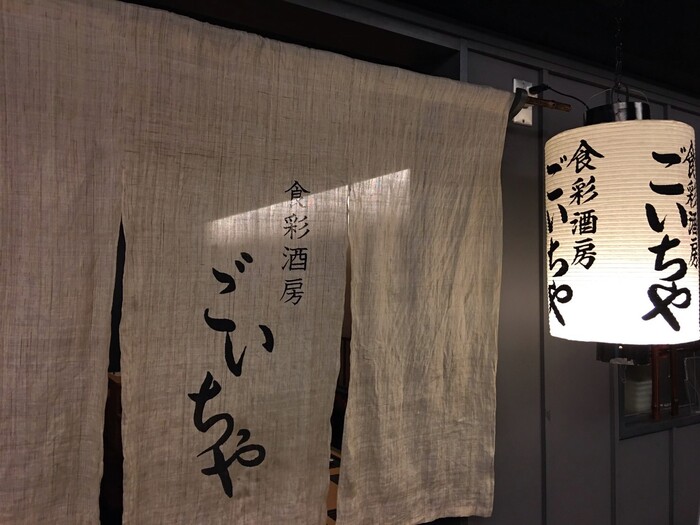 食彩酒房
ごいちや
食彩酒房
ごいちや
食彩酒房
ごいちや